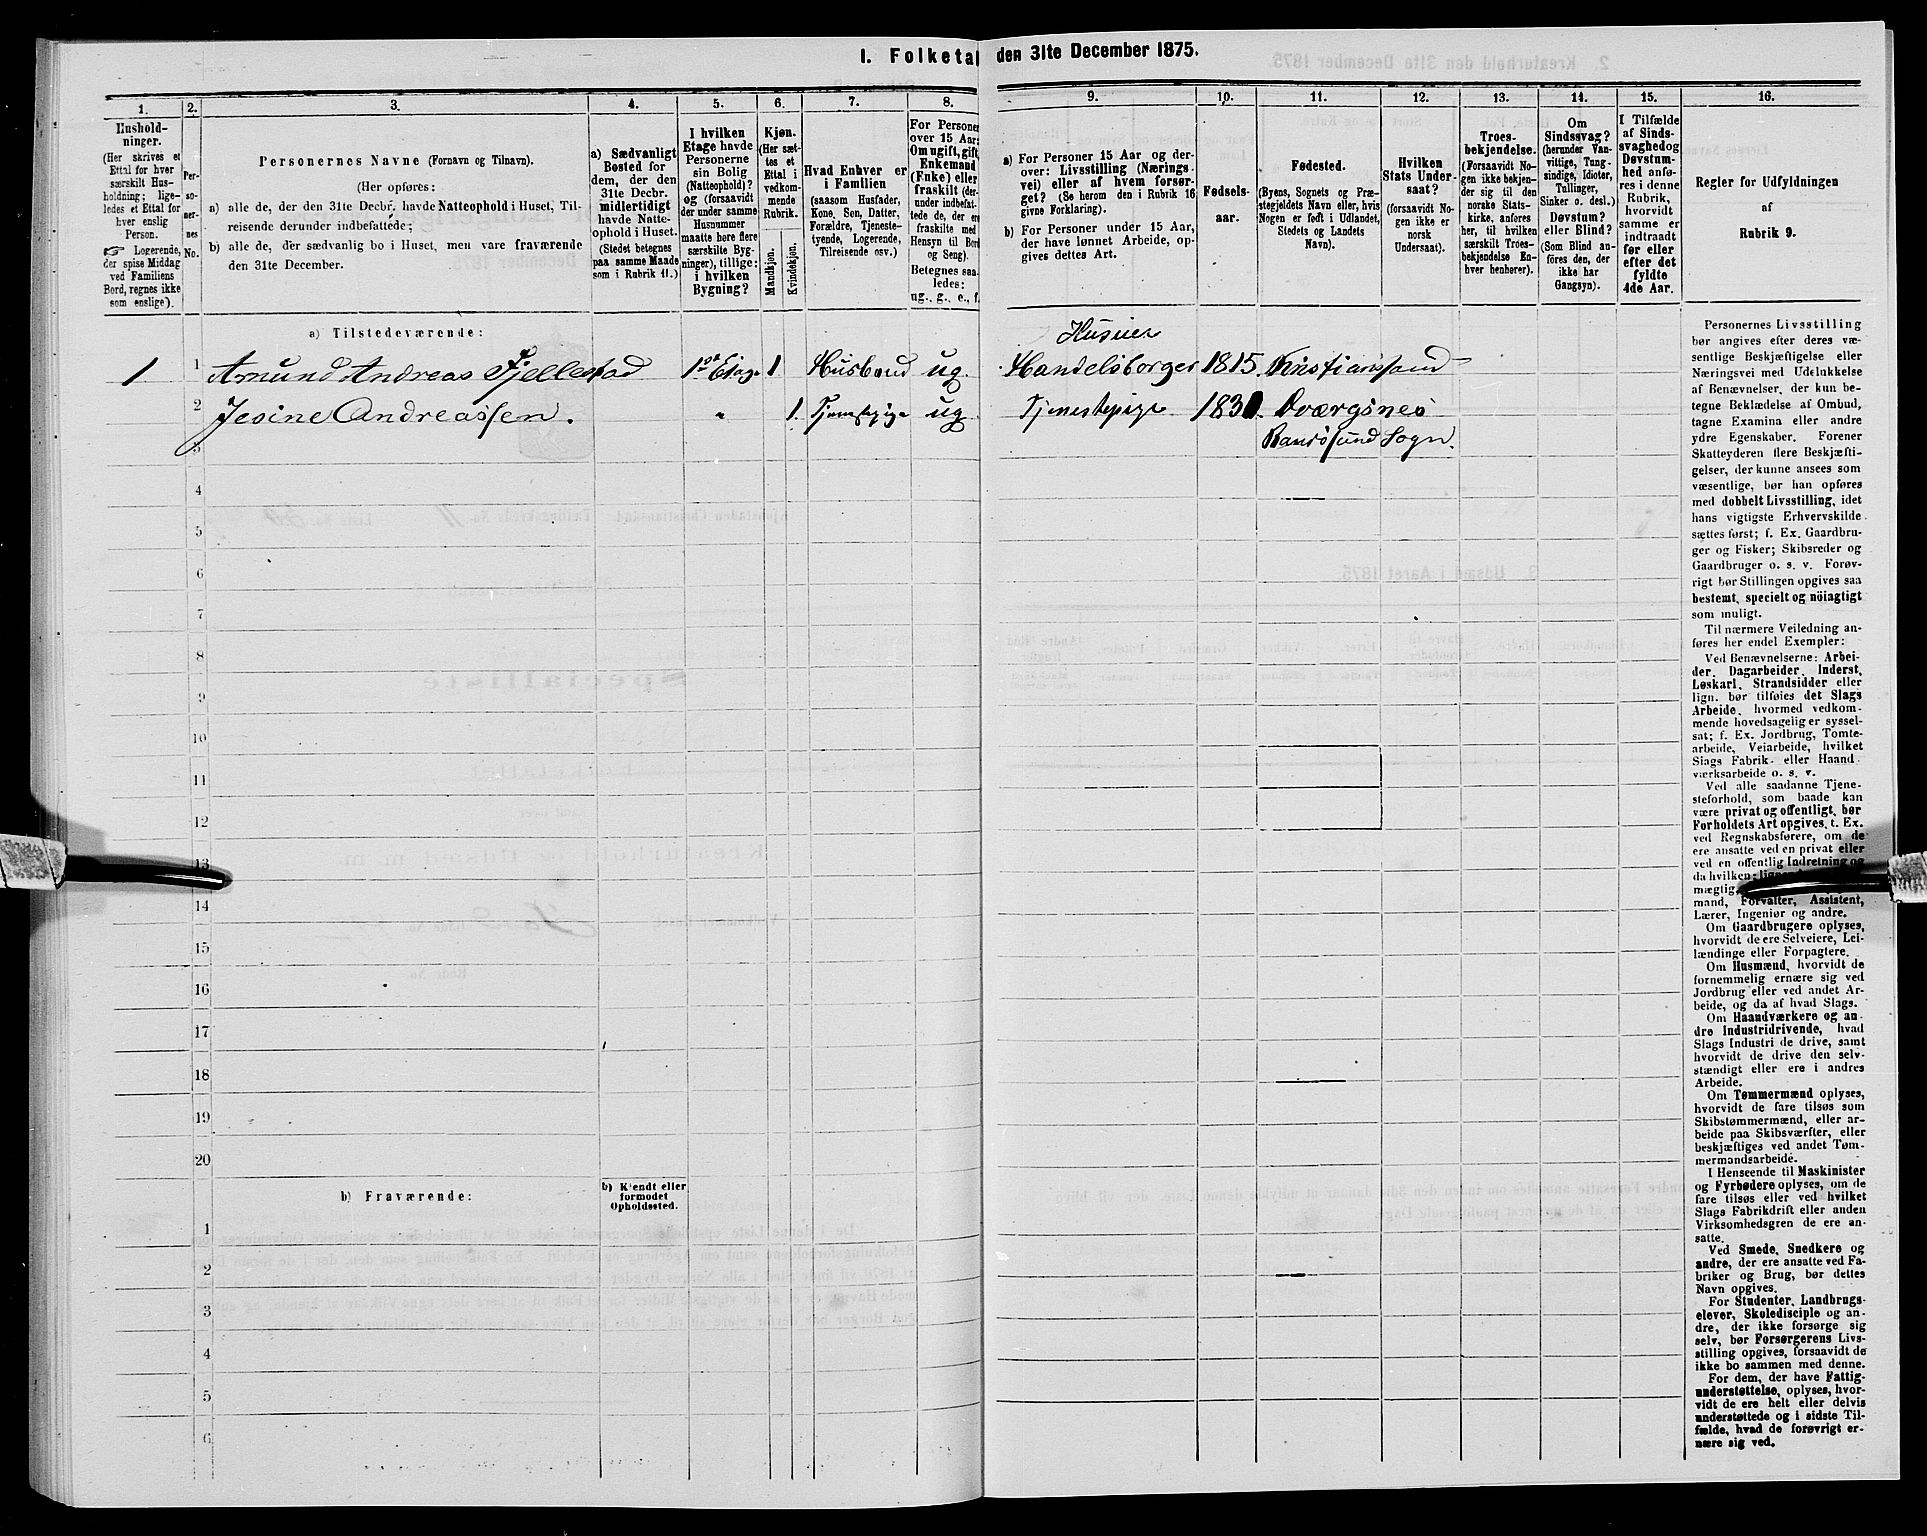 1. Folketal den 31te December 1875.
1. 2. 3. 4. 5. 6. 7. 8. 9. 10. 11. 12. 13. 14. 15. 16.
Hushold-
ninger.
(Her skrives et
Ettal for hver
særskilt Hus-
holdning; lige-
ledes et Ettal for
hver enslig
Person.
☞ Logerende,
der spise Middag
ved Familiens
Bord, regnes ikke
som enslige).
Per-
so-
ner-
nes
No.
Personernes Navne (Fornavn og Tilnavn).
(Her opføres:
a) alle de, der den 31te Decbr. havde Natteophold i Huset, Til-
reisende derunder indbefattede;
b) alle de, der sædvanlig bo i Huset, men vare fraværende
den 31te December.
a) Sædvanligt
Bosted for
dem, der den
31te Decbr.
midlertidigt
havde Natte-
ophold i Huset.
(Stedet betegnes
paa samme Maade
som i Rubrik 11.)
I hvilken
Etage havde
Personerne
sin Bolig
(Natteophold)?
og (forsaavidt
der under samme
Husnummer
maatte høre flere
særskilte Byg-
ninger), tillige:
i hvilken
Bygning?
Kjøn.
(Her sæt-
tes et
Ettal i
vedkom-
mende
Rubrik.
Mandkjøn.
Kvindekjøn.
Hvad Enhver er
i Familien
(saasom Husfader,
Kone, Søn, Datter,
Forældre, Tjeneste-
tyende, Logerende,
Tilreisende osv.)
For Personer
over 15 Aar:
Om ugift, gift,
Enkemand
(Enke) eller
fraskilt (der-
under indbefat-
tede de, der ere
fraskilte med
Hensyn til Bord
og Seng).
Betegnes saa-
ledes:
ug., g., e., f.
a) For Personer 15 Aar og der-
over: Livsstilling (Nærings-
vei) eller af hvem forsør-
get? (Se herom den i Rubrik 16
givne Forklaring).
b) For Personer under 15 Aar,
der have lønnet Arbeide, op-
gives dettes Art.
Fødsels-
aar.
Fødested.
(Byens, Sognets og Præ-
stegjeldets Navn eller, hvis
Nogen er født i Udlandet,
Stedets og Landets
Navn).
Hvilken
Stats Under-
saat?
(forsaavidt No-
gen ikke er
norsk
Undersaat).
Troes-
bekjendelse.
(Forsaavidt No-
gen ikke bekjen-
der sig til den
norske Stats-
kirke, anføres
her, til hvilken
særskilt Troes-
bekjendelse En-
hver henhører).
Om
Sindssvag?
(herunder Van-
vittige, Tung-
sindige, Idioter,
Tullinger,
Sinker o. desl.)
Døvstum?
eller Blind?
(Som Blind an-
føres den, der
ikke har
Gangsyn).
I Tilfælde
af Sinds-
svaghed og
Døvstum-
hed anfø-
res i denne
Rubrik,
hvorvidt
samme er
indtraadt
før eller
efter det
fyldte
4de Aar.
Regler for Udfyldningen
af
Rubrik 9.
a) Tilstedeværende:
Huseier
1 1 Amund Andreas Fjellestad 1st Etage 1 Husbond ug. Handelsborger 1815. Kristianssand
2 Jesine Andreassen. " 1. Tjenestepige ug. Tjenestepige Dværgsnes
3 Randøsund Sogn.
4
5
6
7
8
9
10
11
12
13
14
15
16
17
18
19
20
b) Fraværende:
b) Kjendt eller
formodet
Opholdssted.
1
2
3
4
5
6
Personernes Livsstilling
bør angives efter deres væ-
sentlige Beskjæftigelse eller
Næringsvei med Udelukkelse
af Benævnelser, der kun be-
tegne Beklædelse af Ombud,
tagne Examina eller andre
ydre Egenskaber. Forener
Skatteyderen flere Beskjæfti-
gelser, der kunne ansees som
væsentlige, bør han opføres
med dobbelt Livsstilling, idet
hans vigtigste Erhvervskilde
sættes først; f. Ex. Gaardbru-
ger og Fisker; Skibsreder og
Gaardbruger o. s. v. Forøv-
rigt bør Stillingen opgives saa
bestemt, specielt og nøiagtigt
som muligt.
Til nærmere Veiledning an-
føres her endel Exempler:
Ved Benævnelserne: Arbei-
der, Dagarbeider, Inderst,
Løskarl, Strandsidder eller
lign. bør tilføies det Slags
Arbeide, hvormed vedkom-
mende hovedsagelig er syssel-
sat; f. Ex. Jordbrug, Tomte-
arbeide, Veiarbeide, hvilket
Slags Fabrik- eller Haand-
værksarbeide o. s. v.
Ved alle saadanne Tjene-
steforhold, som baade kan
være privat og offentligt, bør
Forholdets Art opgives, f. Ex.
ved Regnskabsførere, om de
ere ansatte ved en privat eller
ved en offentlig Indretning og
da hvilken;
mægtig,
mand, Forvalter, Assistent,
Lærer, Ingeniør og andre.
Om Gaardbrugere oplyses,
hvorvidt de ere Selveiere, Lei-
lændinge eller Forpagtere.
Om Husmænd, hvorvidt de
fornemmelig ernære sig ved
Jordbrug eller ved andet Ar-
beide, og da af hvad Slags.
Om Haandværkere og an-
dre Industridrivende, hvad
Slags Industri de drive, samt
hvorvidt de drive den selv-
stændigt eller ere i andres
Arbeide.
Om Tømmermænd oplyses,
hvorvidt de fare tilsøs som
Skibstømmermænd, eller ar-
beide paa Skibsværfter, eller
beskjæftiges ved andet Tøm-
mermandsarbeide.
I Henseende til Maskinister
og Fyrbødere oplyses, om de
fare tilsøs eller ved hvilket
Slags Fabrikdrift eller anden
Virksomhedsgren de ere an-
satte.
Ved Smede, Snedkere og
andre, der ere ansatte ved Fa-
briker og Brug, bør dettes
Navn opgives.
For Studenter, Landbrugs-
elever, Skoledisciple og an-
dre, der ikke forsørge sig
selv, bør Forsørgerens Livs-
stilling opgives, forsaavidt de
ikke bo sammen med denne.
For dem, der have Fattig-
understøttelse, oplyses, hvor-
vidt de ere helt eller delvis
understøttede og i sidste Til-
fælde, hvad de forøvrigt er-
nære sig ved.